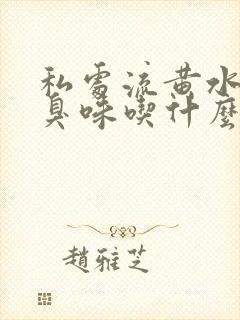 私處流黃水
臭味喫什麼
趙雅芝